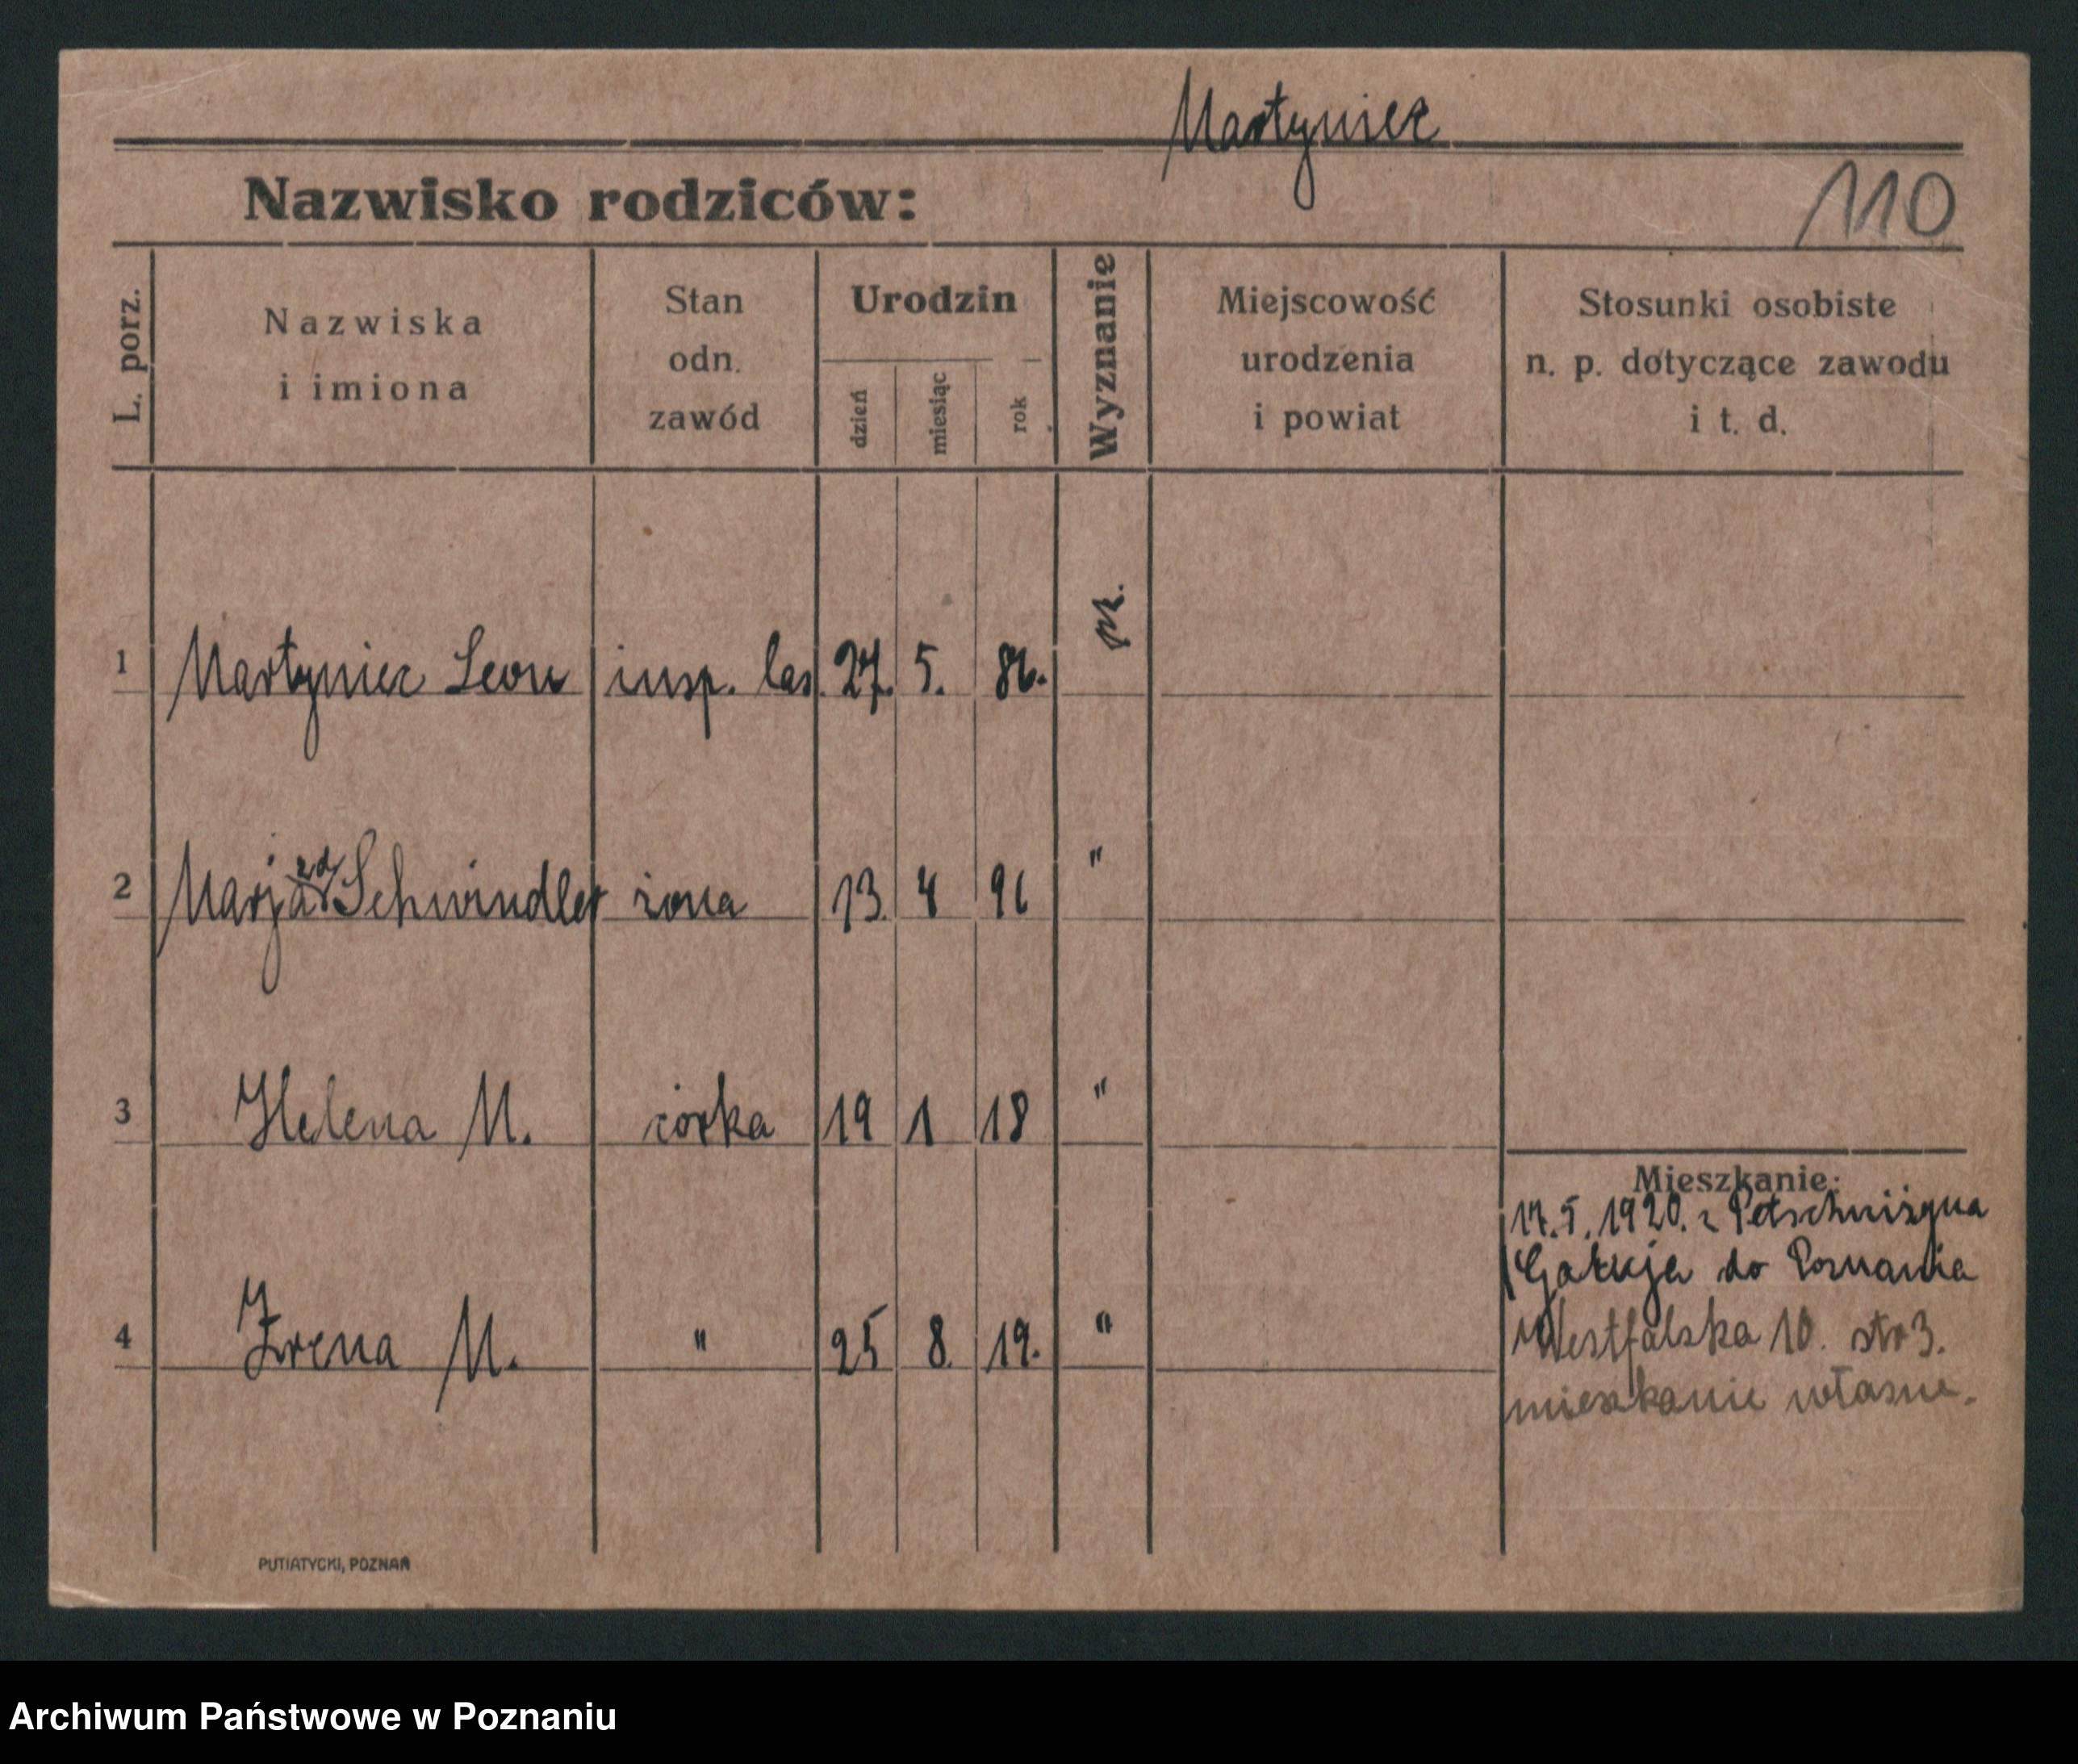 Martyniec
Nazwisko rodziców:
110
L. porz.
Nazwiska
i imiona
Stan
odn.
zawód
Urodzin
dzień
miesiąc
rok
Wyznanie
Miejscowość
urodzenia
i powiat
Stosunki osobiste
n. p. dotyczące zawodu
i t. d.
1 Martyniec Leon insp. las. 27. 5. 86.
2 Marja Schwindler żona 13. 4 96 "
3 Helena M. córka 19 1 18 "
4 Irena M. " 25 8. 19. "
Mieszkanie:
17.5.1920. z
do Poznania
Westfalska 10. str 3.
mieszkanie własne.
PUTIATYCKI, POZNAŃ
Archiwum Państwowe w Poznaniu